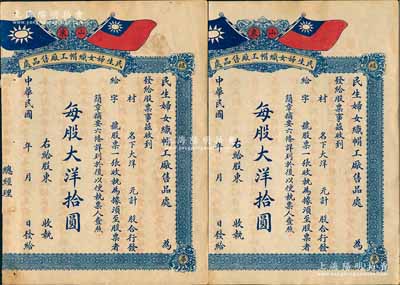 山東
民生婦女織帽工廠售品處
民生婦女織帽工廠售品處 為
發給股票事茲收到
村 名下大洋 元計 股合行發
給 字 號股票一張收執為據須至股票者
簡章摘要六條詳列於後以便執票人查照
每股大洋拾圓
右給股東 收執
中華民國 年 月 日發給
總經理
山東
民生婦女織帽工廠售品處
民生婦女織帽工廠售品處 為
發給股票事茲收到
村 名下大洋 元計 股合行發
給 字 號股票一張收執為據須至股票者
簡章摘要六條詳列於後以便執票人查照
每股大洋拾圓
右給股東 收執
中華民國 年 月 日發給